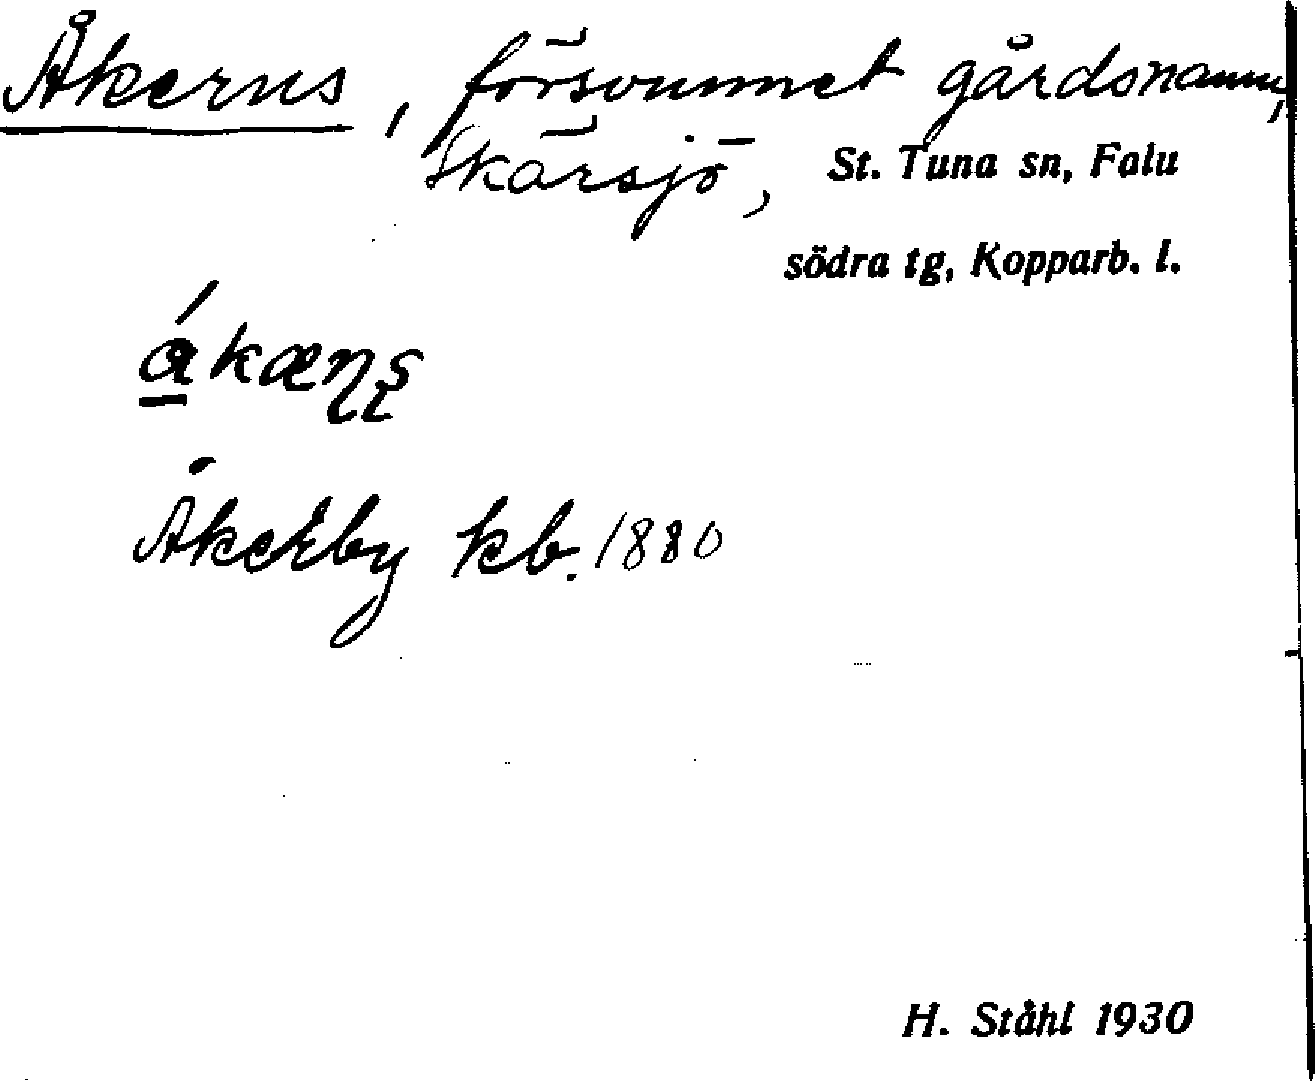 Åkerns, försvunnet gårdsnamn,
Skärsjö, St. Tuna sn, Falu
södra tg, Kopparb. l.
ǻkæɳʂ
Åkerby kb. 1880
H. Ståhl 1930